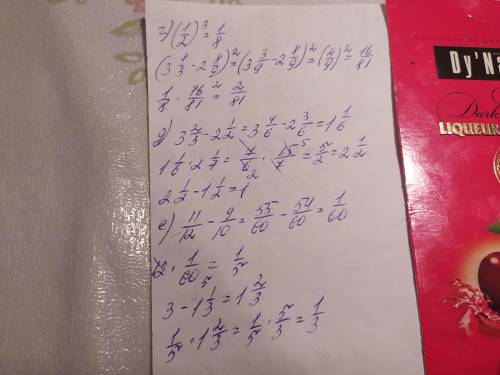 г) (1/2)³ = 1/8
(3 1/3 - 2 8/9)² = (3 3/9 - 2 8/9)² = (4/9)² = 16/81
1/8 · 16/81 ² = 2/81
д) 3 2/3 - 2 1/2 = 3 4/6 - 2 3/6 = 1 1/6
1 1/6 · 2 1/7 = 7/6 2 · 15/7 5 = 5/2 = 2 1/2
2 1/2 - 1 1/2 = 1
е) 11/12 - 9/10 = 55/60 - 54/60 = 1/60
12 · 1/60 5 = 1/5
3 - 1 1/3 = 1 2/3
1/5 · 1 2/3 = 1/5 · 5/3 = 1/3
Dy'Na
Dark
LIQUEUR